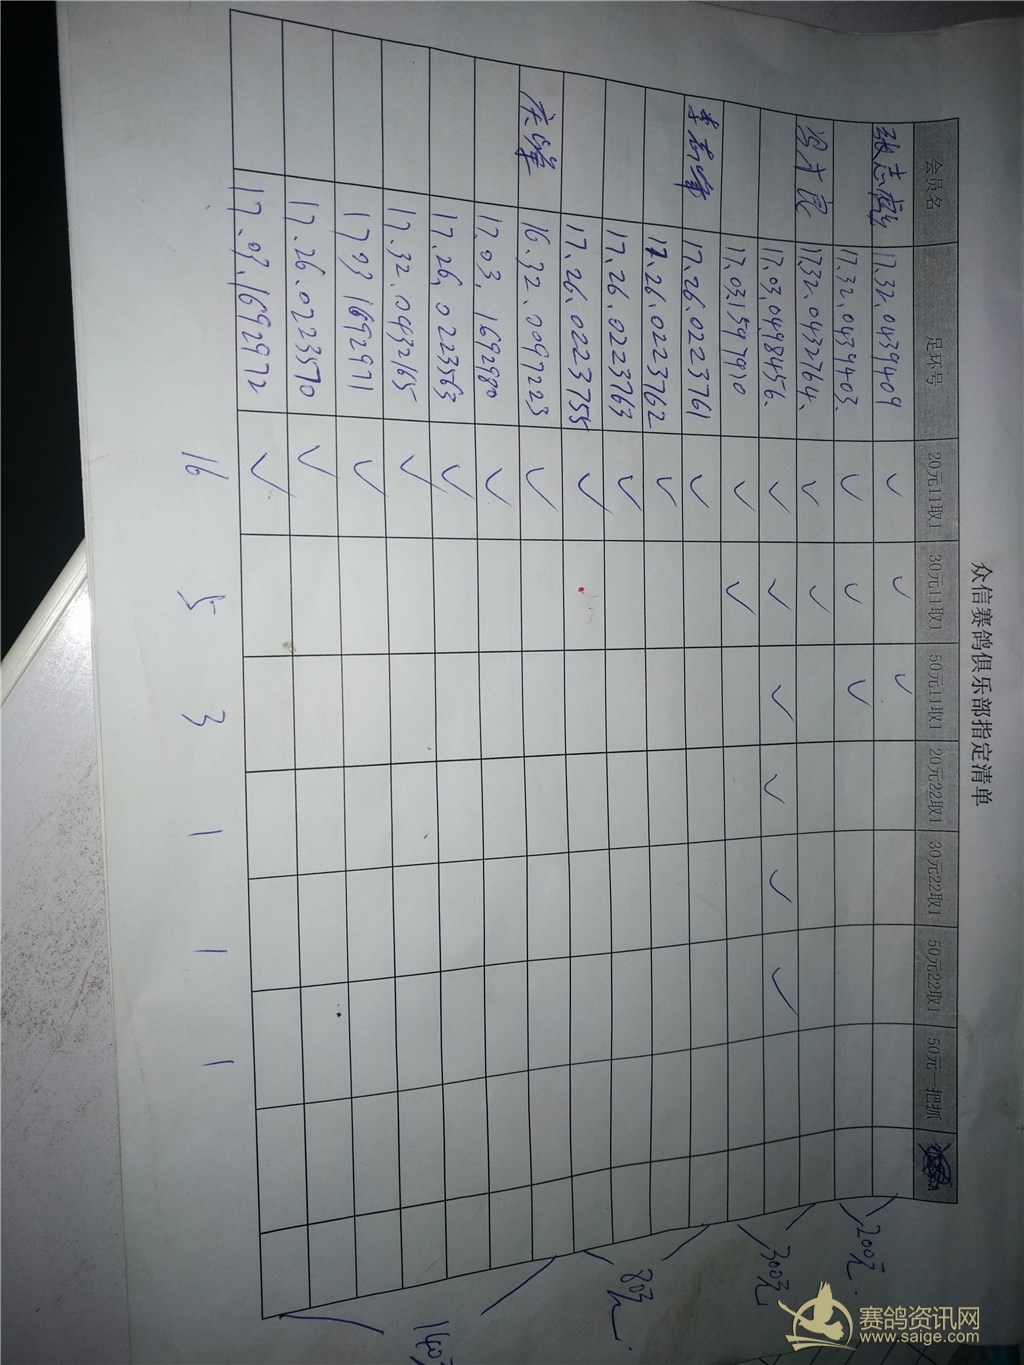 众信赛鸽俱乐部指定清单
会员名 足环号 20元11取1 30元11取1 50元11取1 20元22取1 30元22取1 50元22取1 50元一把抓
17.32.0439409 ✓ ✓ ✓
17.32.0439403. ✓ ✓ ✓
17.32.0432764. ✓ ✓
17.03.0498456. ✓ ✓ ✓ ✓ ✓ ✓
17.03.1597910 ✓ ✓
17.26.0223761 ✓
17.26.0223762 ✓
17.26.0223763 ✓
17.26.0223755 ✓
16.32.0097223 ✓
17.03.1692980 ✓
17.26.0223563 ✓
17.32.0432165 ✓
17 03 1692971 ✓
17.26.0223570 ✓
17.03.1692972 ✓
16 5 3 1 1 1
200元.
300元
80元
140元
赛鸽资讯网
www.saige.com